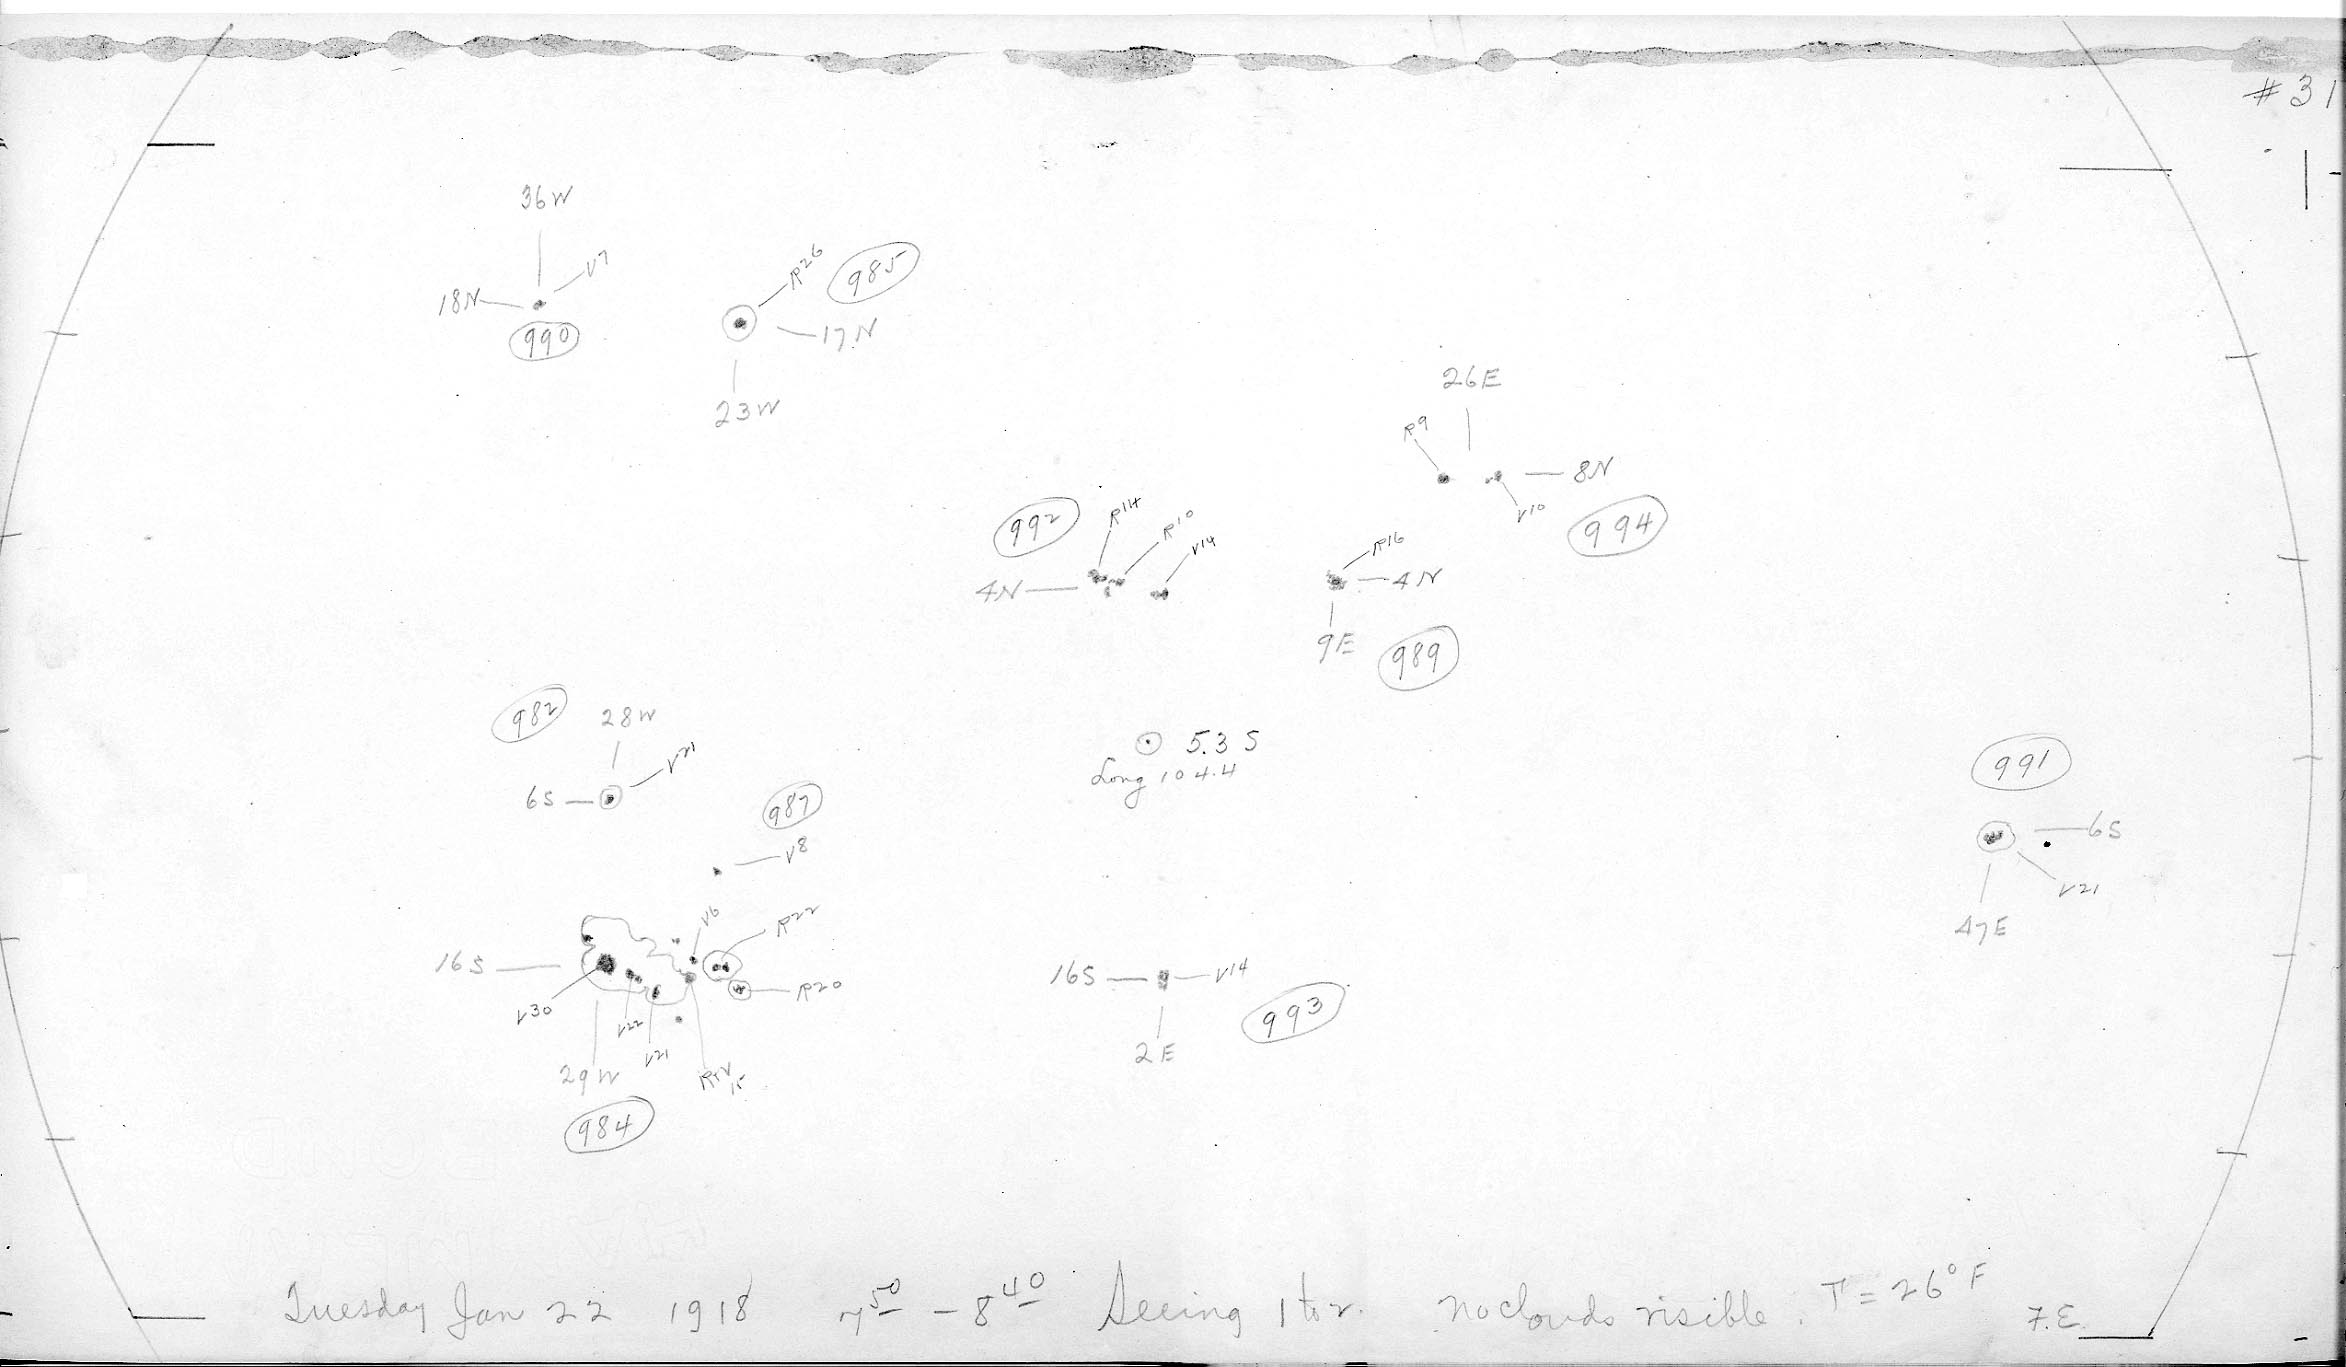 #31
36W
V7
R26
985
18N
17N
990
23W
26E
R9
8N
V10
994
992
R14
R10
V14
4N
R16
4N
9E
989
982
28W
V21
6S
5.3 S
Long 104.4
987
V8
991
6S
V21
47E
V6
R22
16S
R20
V30
V22
V21
29W
984
16S
V14
993
2E
Tuesday Jan 22 1918 7 50 - 8 40 Seeing 1 to 2. No clouds visible. T = 26° F
F.E.